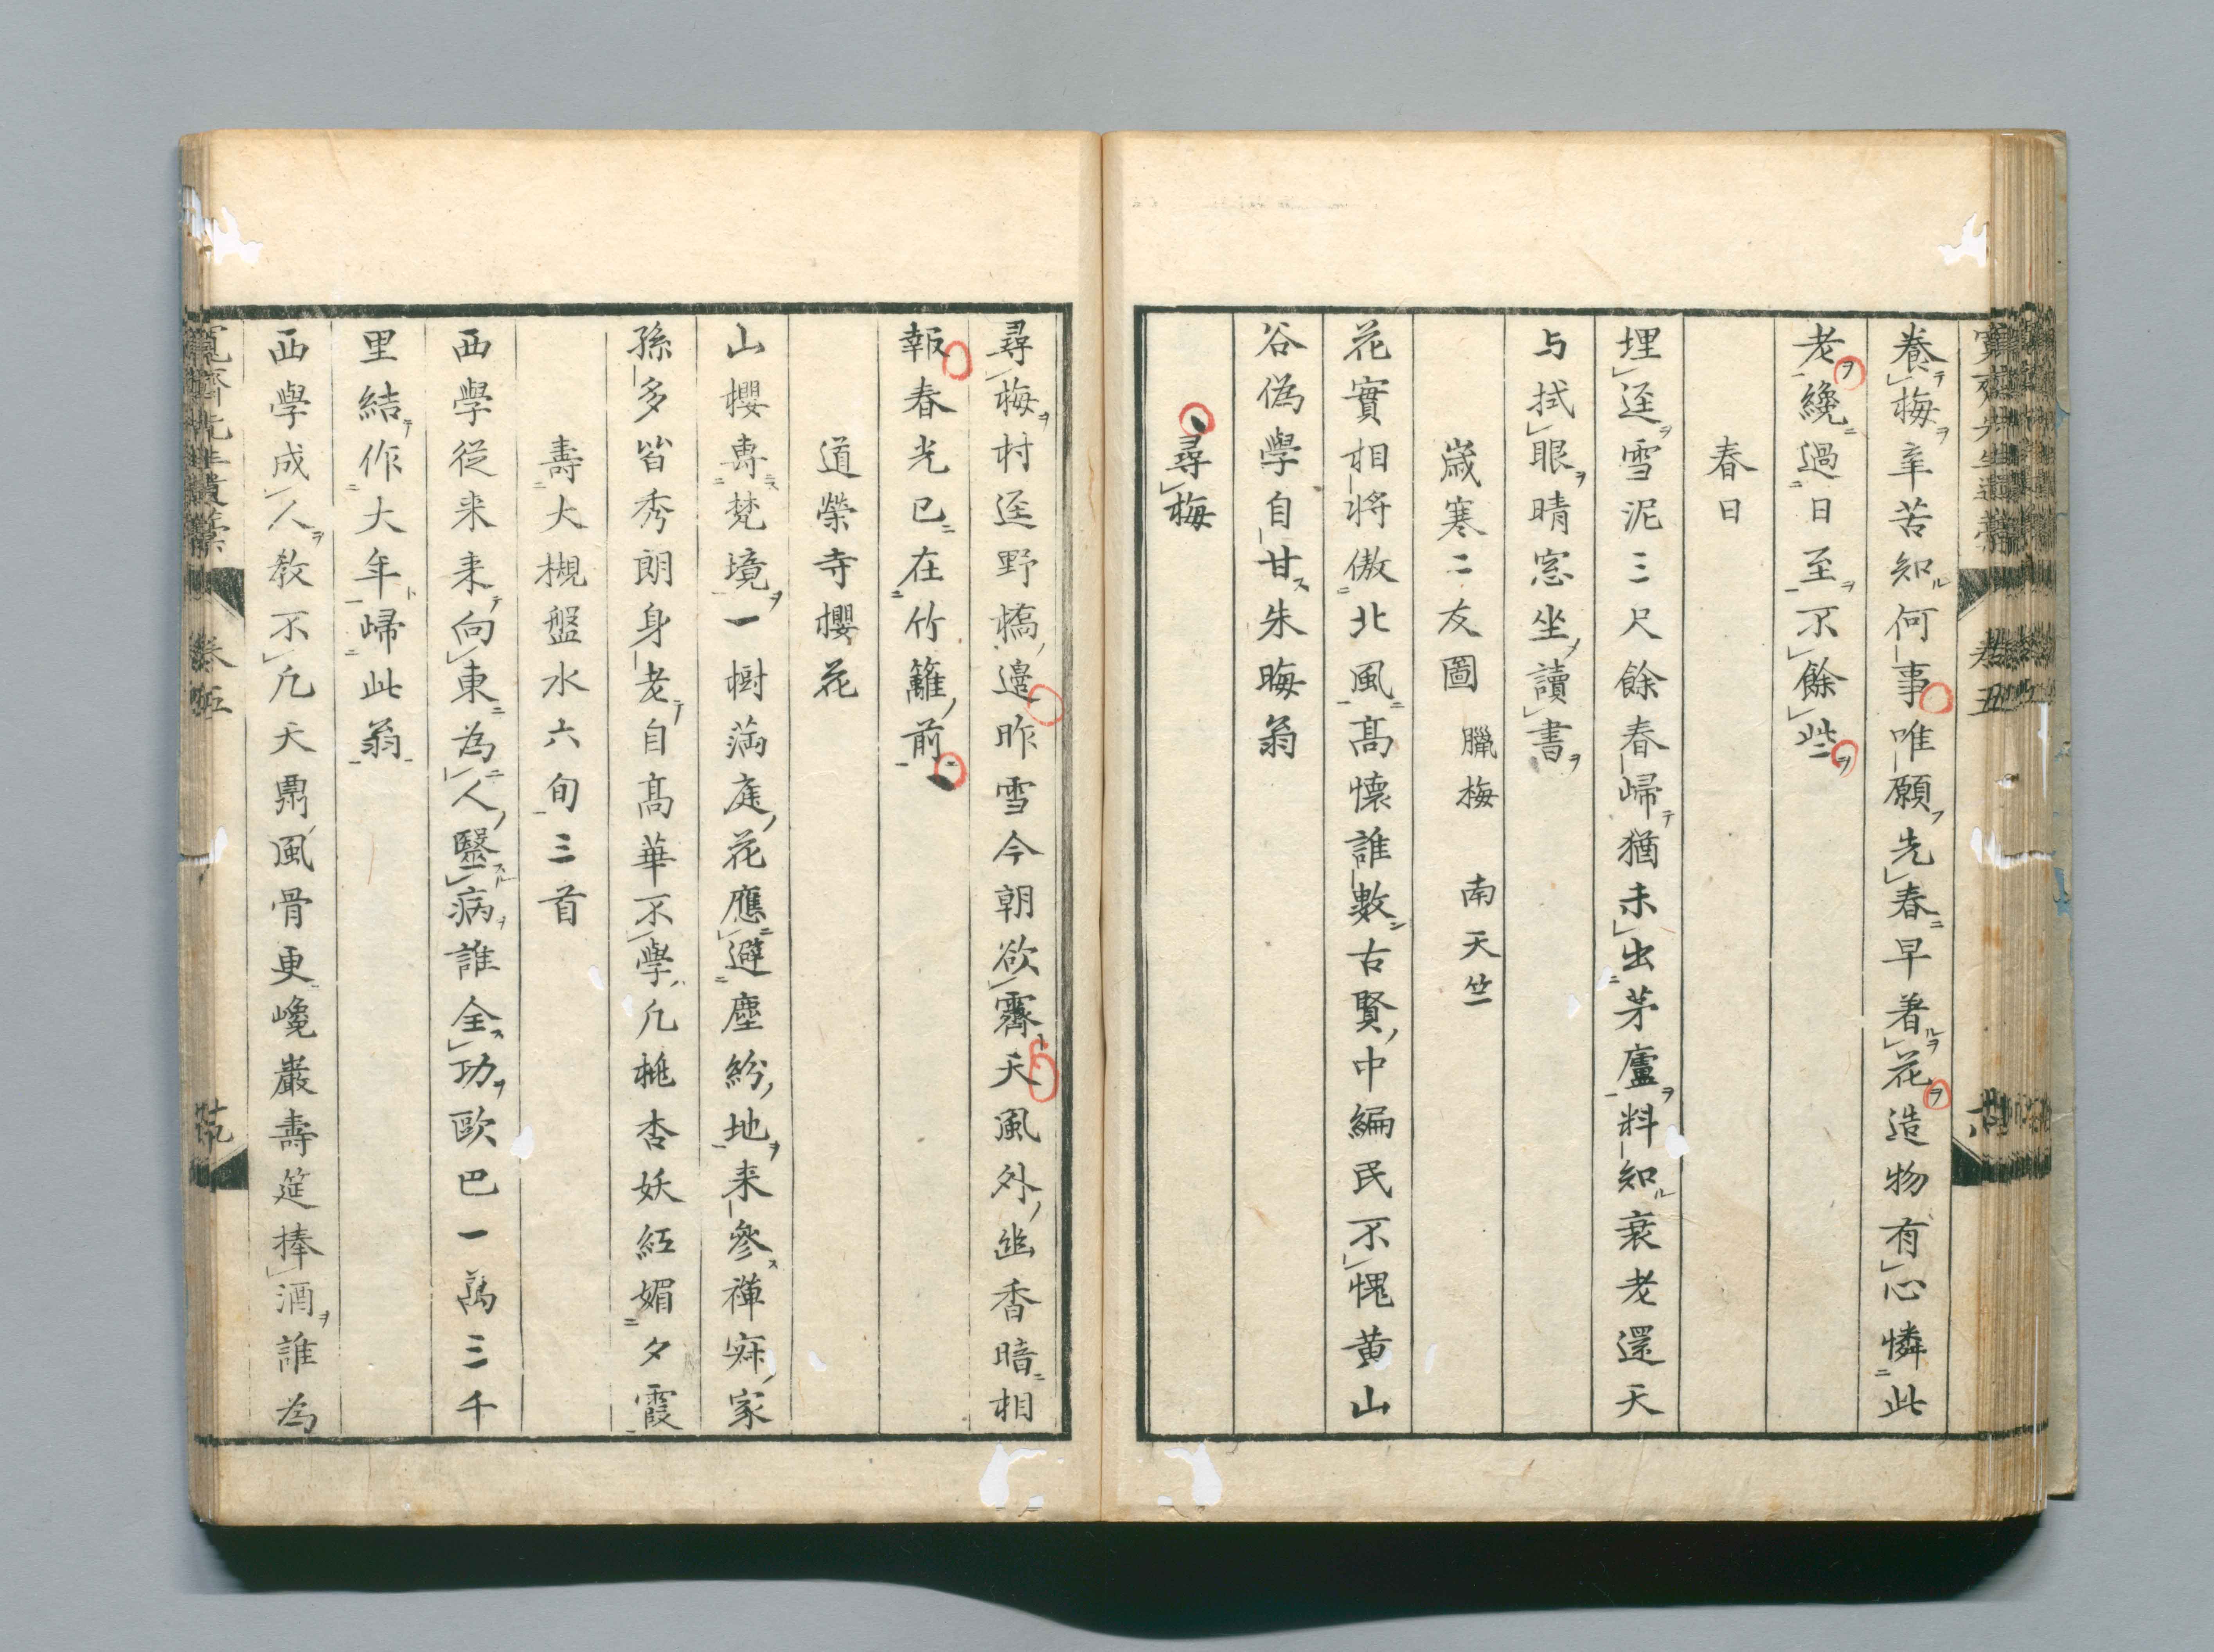 養梅辛苦知何事唯願先春早着花造物有心憐此
老纔過日至不餘些
春日
埋逕雪泥三尺餘春帰猶未出茅廬料知衰老還天
与拭眼晴窓坐讀書
歳寒二友圖 臘梅 南天竺
花實相將傲北風高懐誰數古賢中編民不愧黄山
谷偽學自甘朱晦翁
尋梅
尋梅村逕野橋邊昨雪今朝欲霽天風外幽香暗相
報春光已在竹籬前
道榮寺櫻花
山櫻專梵境一樹満庭花應避塵紛地来參禅寂家
孫多皆秀朗身老自高華不學凡桃杏妖紅媚夕霞
壽大槻盤水六旬三首
西學從来来向東為人醫病誰全功歐巴一萬三千
里結作大年帰此翁
西學成人教不凡天鼎風骨更巉巖壽筵捧酒誰為
卷五